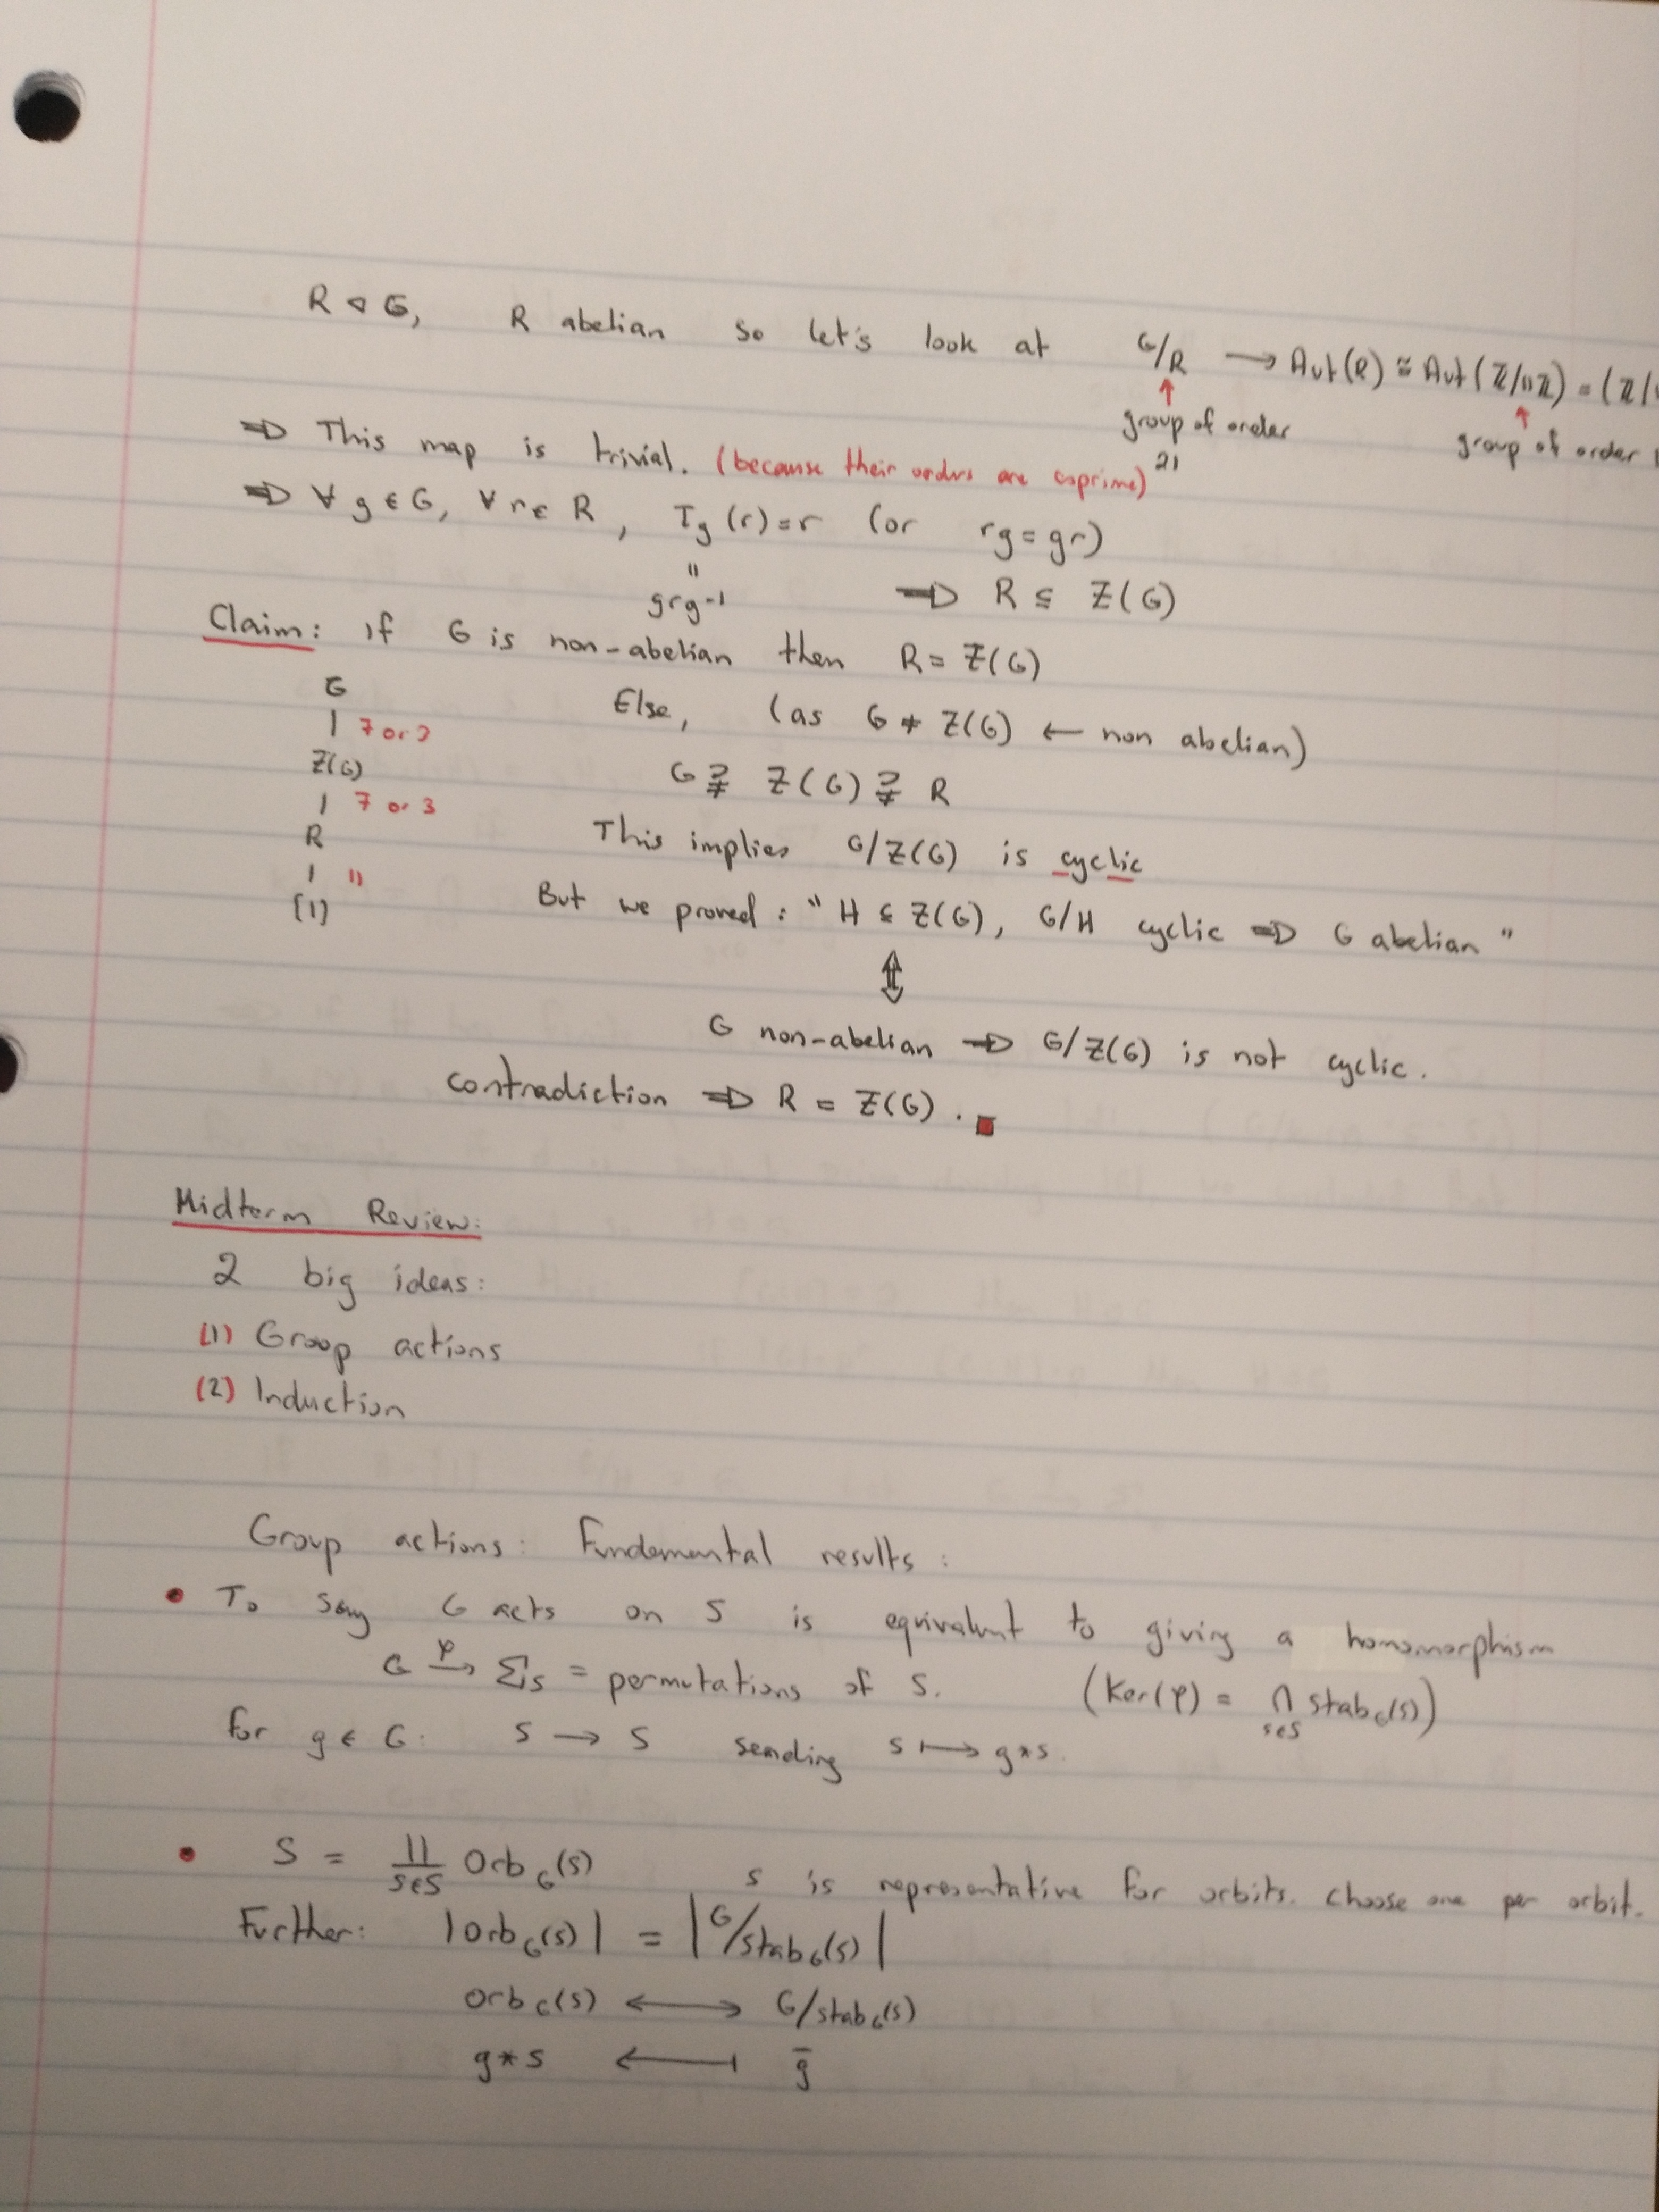 R ◁ G, R abelian so let's look at G/R → Aut(R) ≅ Aut(ℤ/11ℤ) = (ℤ/
↑ group of order 21
↑ group of order 1
⇒ This map is trivial. (because their orders are coprime)
⇒ ∀ g ∈ G, ∀ r ∈ R, Tg(r) = r (or rg = gr)
"
grg⁻¹ ⇒ R ⊆ Z(G)
Claim: if G is non-abelian then R = Z(G)
G
| 7 or 3
Z(G)
| 7 or 3
R
| 11
(1)
Else, (as G ≠ Z(G) ← non abelian)
G ⊋ Z(G) ⊋ R
This implies G/Z(G) is cyclic
But we proved: "H ⊆ Z(G), G/H cyclic ⇒ G abelian"
⇕
G non-abelian ⇒ G/Z(G) is not cyclic.
contradiction ⇒ R = Z(G). ■
Midterm Review:
2 big ideas:
(1) Group actions
(2) Induction
Group actions: Fundemental results:
• To say G acts on S is equivalent to giving a homomorphism
G –φ→ Σs = permutations of S. (Ker(φ) = ∩ s∈S stab_G(s))
for g ∈ G: S → S sending s ↦ g*s.
• S = ∐ s∈S Orb_G(s) s is representative for orbits. choose one per orbit.
Further: |Orb_G(s)| = |G/stab_G(s)|
Orb_G(s) ⟷ G/stab_G(s)
g*s ⟻ ḡ